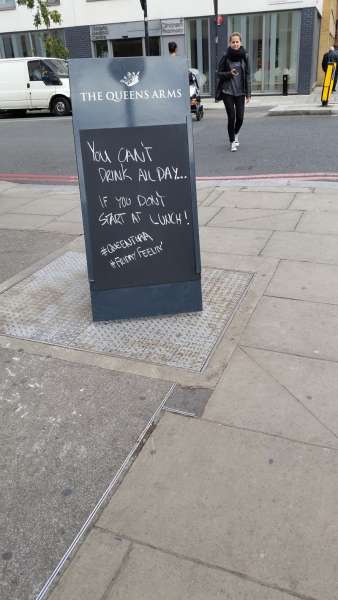 THE QUEENS ARMS
YOU CAN'T
DRINK ALL DAY...
IF YOU DON'T
START AT LUNCH!